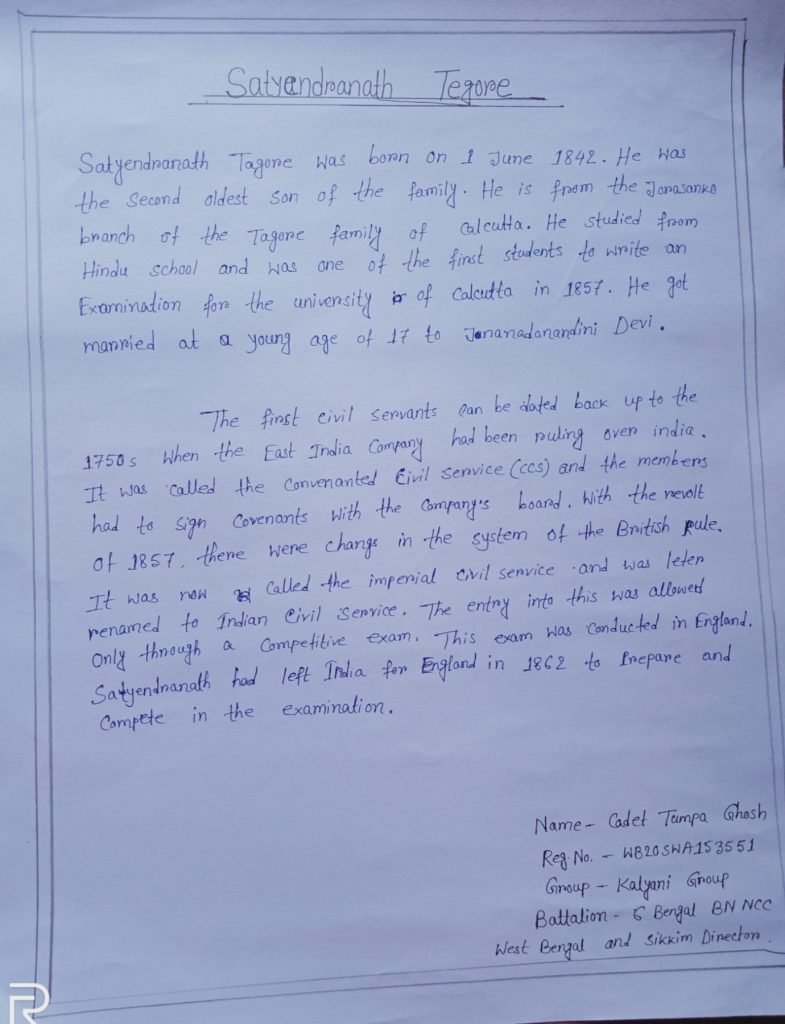 Satyendranath Tegore
Satyendranath Tagore was born on 1 June 1842. He was
the second oldest son of the family. He is from the Jorasanko
branch of the Tagore family of Calcutta. He studied from
Hindu school and was one of the first students to write an
Examination for the university of Calcutta in 1857. He got
married at a young age of 17 to Jnanadanandini Devi.
The first civil servants can be dated back up to the
1750s when the East India Company had been ruling over india.
It was called the Convenanted Civil Service (CCS) and the members
had to sign Covenants with the Company's board. With the revolt
of 1857, there were changs in the system of the British Rule.
It was now called the imperial civil service and was leter
renamed to Indian Civil Service. The entry into this was allowed
Only through a Competitive exam. This exam was conducted in England.
Satyendranath had left India for England in 1862 to Prepare and
Compete in the examination.
Name- Cadet Tumpa Ghosh
Reg. No. - WB20SWA153551
Group - Kalyani Group
Battalion - 6 Bengal BN NCC
West Bengal and Sikkim Director.
R